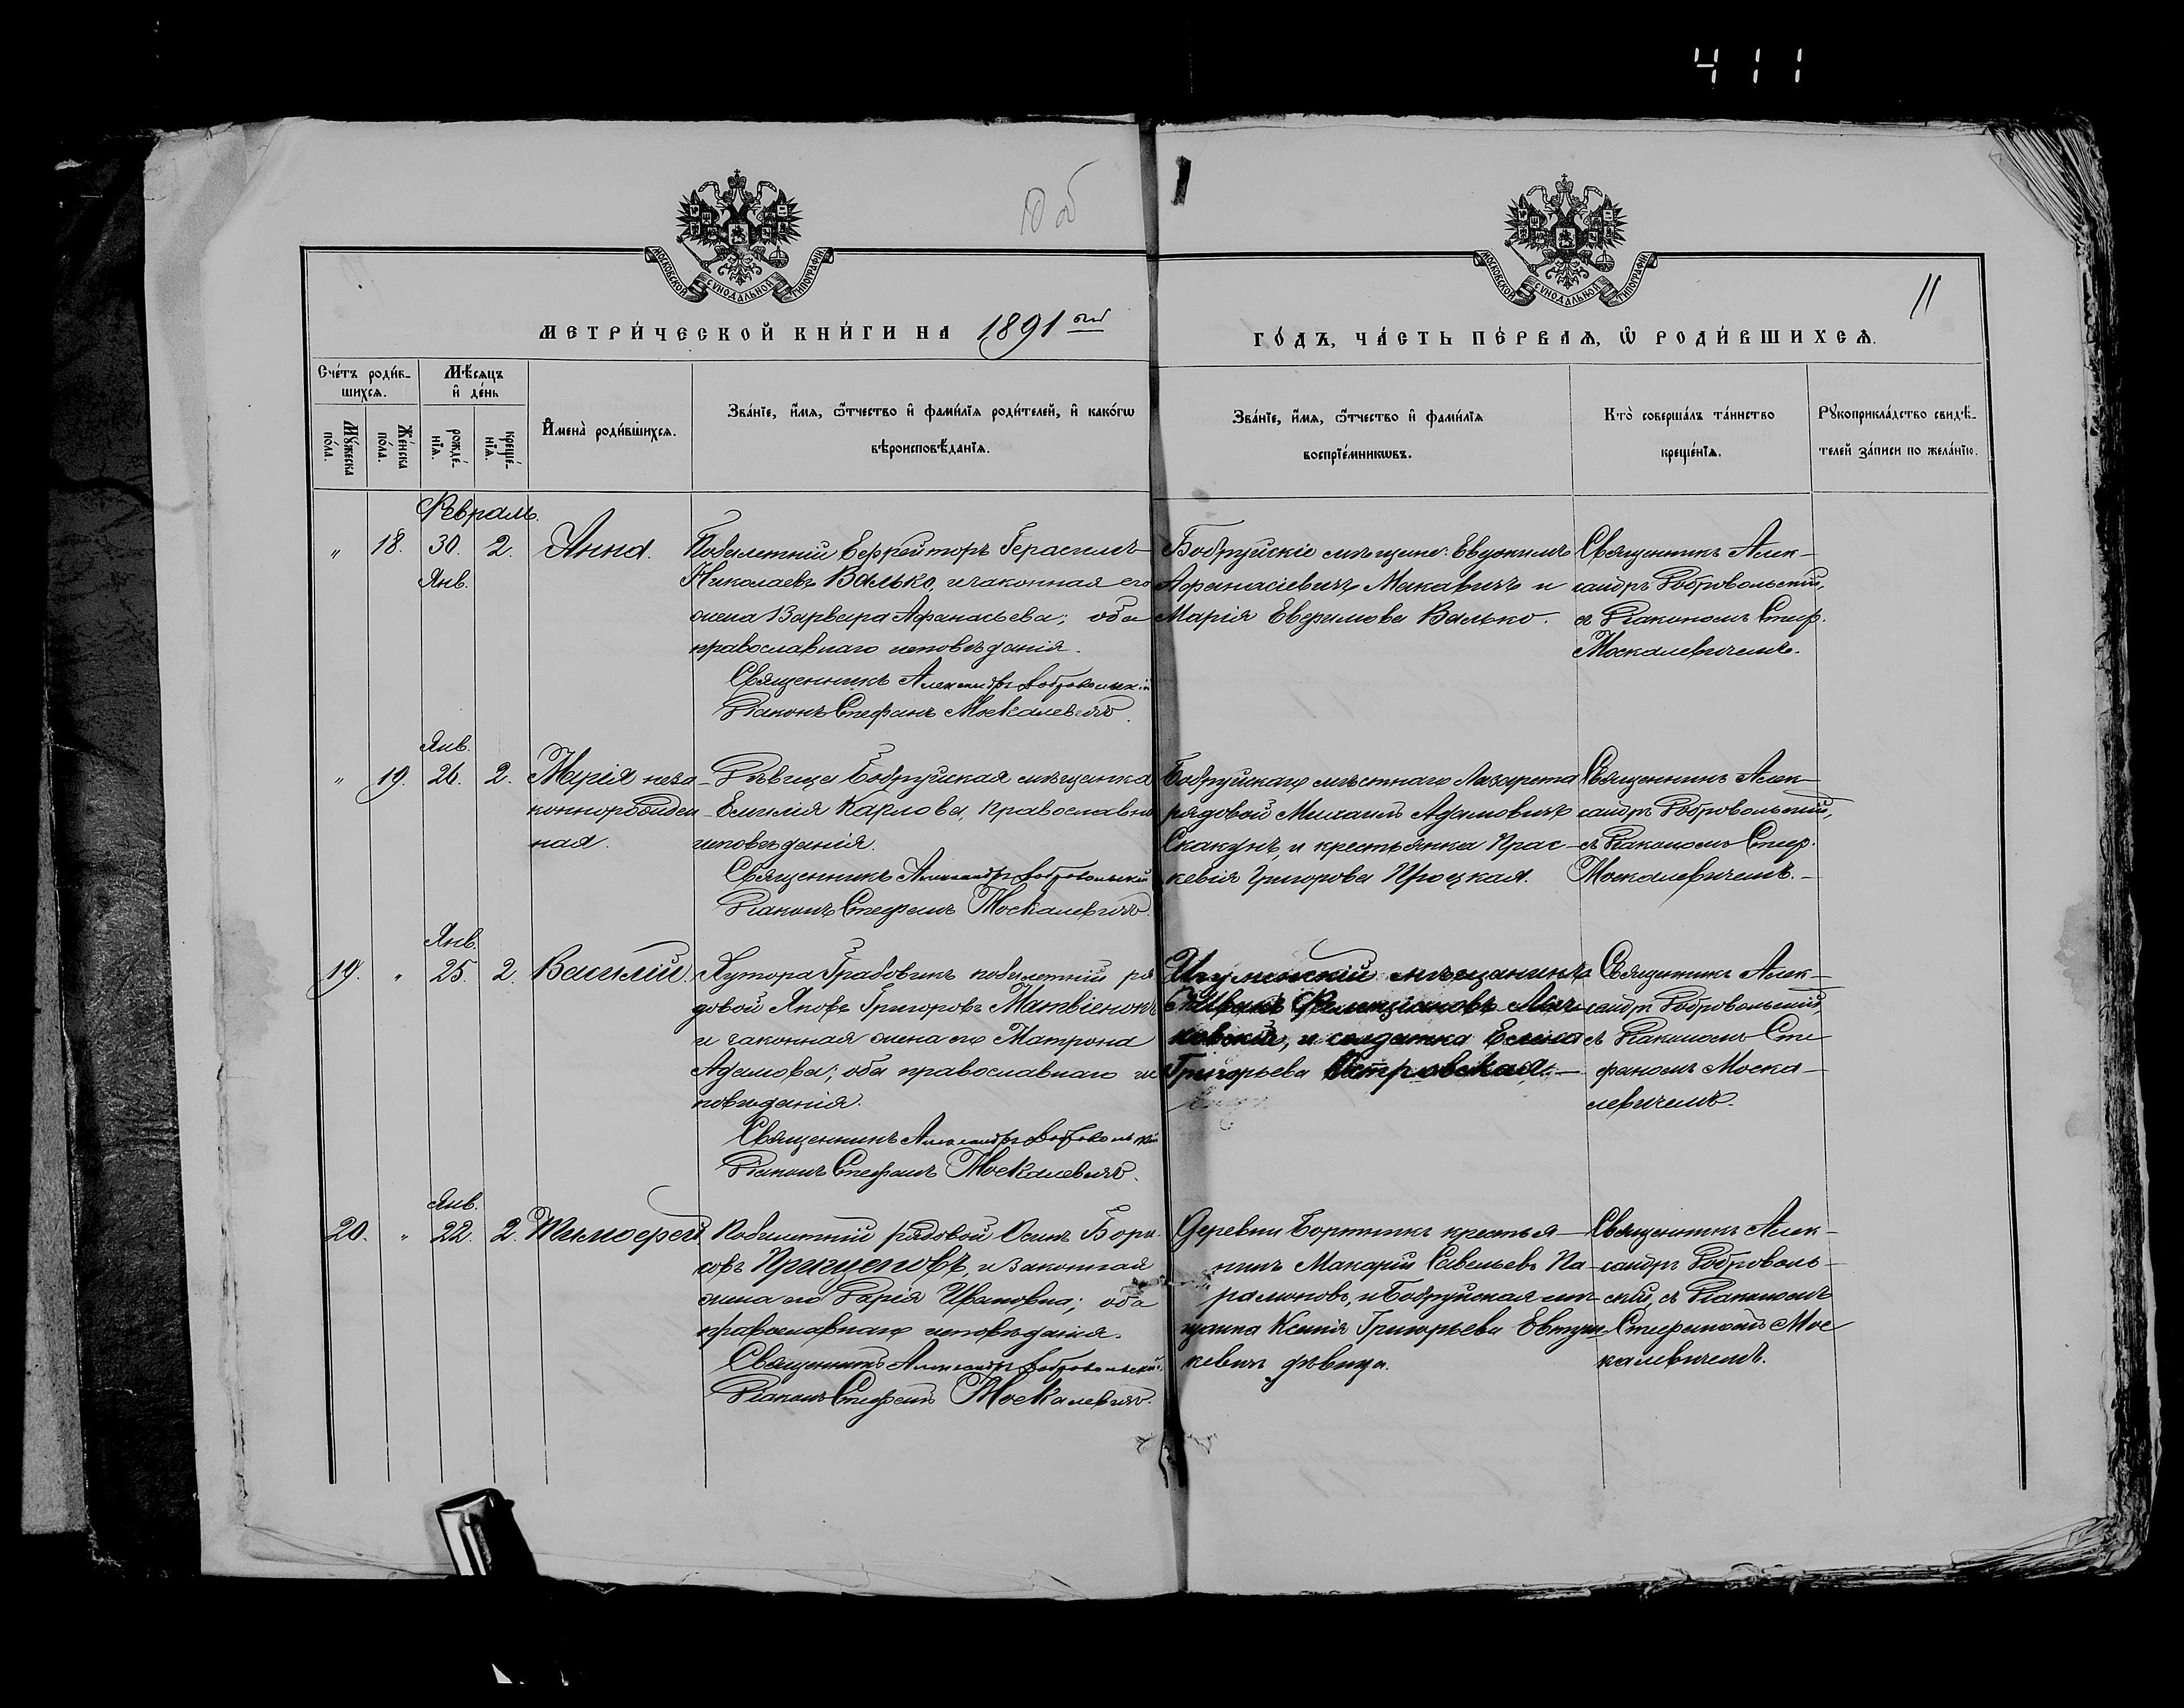 411
Об
11
МОСКОВСКОЙ СѴНОДАЛЬНОЙ ТИПОГРАФІИ
МОСКОВСКОЙ СѴНОДАЛЬНОЙ ТИПОГРАФІИ
МЕТРИ́ЧЕСКОЙ КНИ́ГИ НА 1891 ый
ГО́ДЪ, ЧА́СТЬ ПЕ́РВАѦ, Ѡ҆ РОДИ́ВШИХСѦ.
Сче́тъ роди́в-
шихсѧ.
Мѣ́сѧцъ
и҆ де́нь
Мꙋ́жеска
по́ла.
Же́нска
по́ла.
рожде́-
нїѧ.
креще́-
нїѧ.
И҆мена̀ роди́вшихсѧ.
Зва́нїе, и҆́мѧ, ѻ҆́тчество и҆ фами́лїѧ роди́телей, и҆ како́гѡ
вѣроисповѣ́данїѧ.
Зва́нїе, и҆́мѧ, ѻ҆́тчество и҆ фами́лїѧ
воспрїе́мникѡвъ.
Кто̀ соверша́лъ та́инство
креще́нїѧ.
Рꙋкоприкла́дство свидѣ́-
телей за́писи по жела́нїю.
Февраль.
" 18. 30. 2. Анна.
Янв.
Побилетный Ефрейторъ Герасимъ
Николаевъ Валько, и законная его
жена Варвара Афанасьева; оба
православнаго исповѣданія.
Священникъ Александръ Добровольскій
Діаконъ Стефанъ Москалевичъ.
Бобруйскіе мѣщане: Евдокимъ
Афанасіевичъ Макавичъ и
Марія Ефимова Валько.
Священникъ Алек-
сандръ Добровольскій,
съ Діакономъ Стеф.
Москалевичемъ.
Янв.
" 19. 26. 2. Марія неза-
коннорожден
ная.
Дѣвица Бобруйская мѣщанка
Емилія Карлова, православн
исповѣданія.
Священникъ Александръ Добровольскій
Діаконъ Стефанъ Москалевичъ.
Бобруйскаго мѣстнаго Лазарета
рядовой Михаилъ Адамовичъ
Скакунъ, и крестьянка Прас-
кевія Григорова Процкая.
Священникъ Алек-
сандръ Добровольскій,
съ Діакономъ Стеф.
Москалевичемъ.-
Янв.
19. " 25. 2. Василій.
Хутора Грабовикъ побилетный ря
довой Яковъ Григоровъ Матвіенокъ
и законная жена его Матрона
Адамова; оба православнаго ис
повѣданія.
Священникъ Александръ Добровольскій
Діаконъ Стефанъ Москалевичъ.
Игуменскій мѣщанинъ
Фелиціановъ
, и солдатка
Григорьева Островская.-
Священникъ Алек-
сандръ Добровольскій,
съ Діакономъ Сте
фаномъ Моска-
левичемъ.
Янв.
20. " 22. 2. Тимоѳей.
Побилетный рядовой Осипъ Бори
совъ и законная
жена его Дарія Ивановна; оба
православнаго исповѣданія.
Священникъ Александръ Добровольскій.
Діаконъ Стефанъ Москалевичъ.
Деревни Бортникъ крестья-
нинъ Макарій Савельевъ Па-
рамоновъ, и Бобруйская мѣ-
щанка Ксенія Григорьева Евтуш
кевичъ дѣвица.
Священникъ Алек-
сандръ Доброволь-
скій, съ Діакономъ
Стефаномъ Мос
калевичемъ.